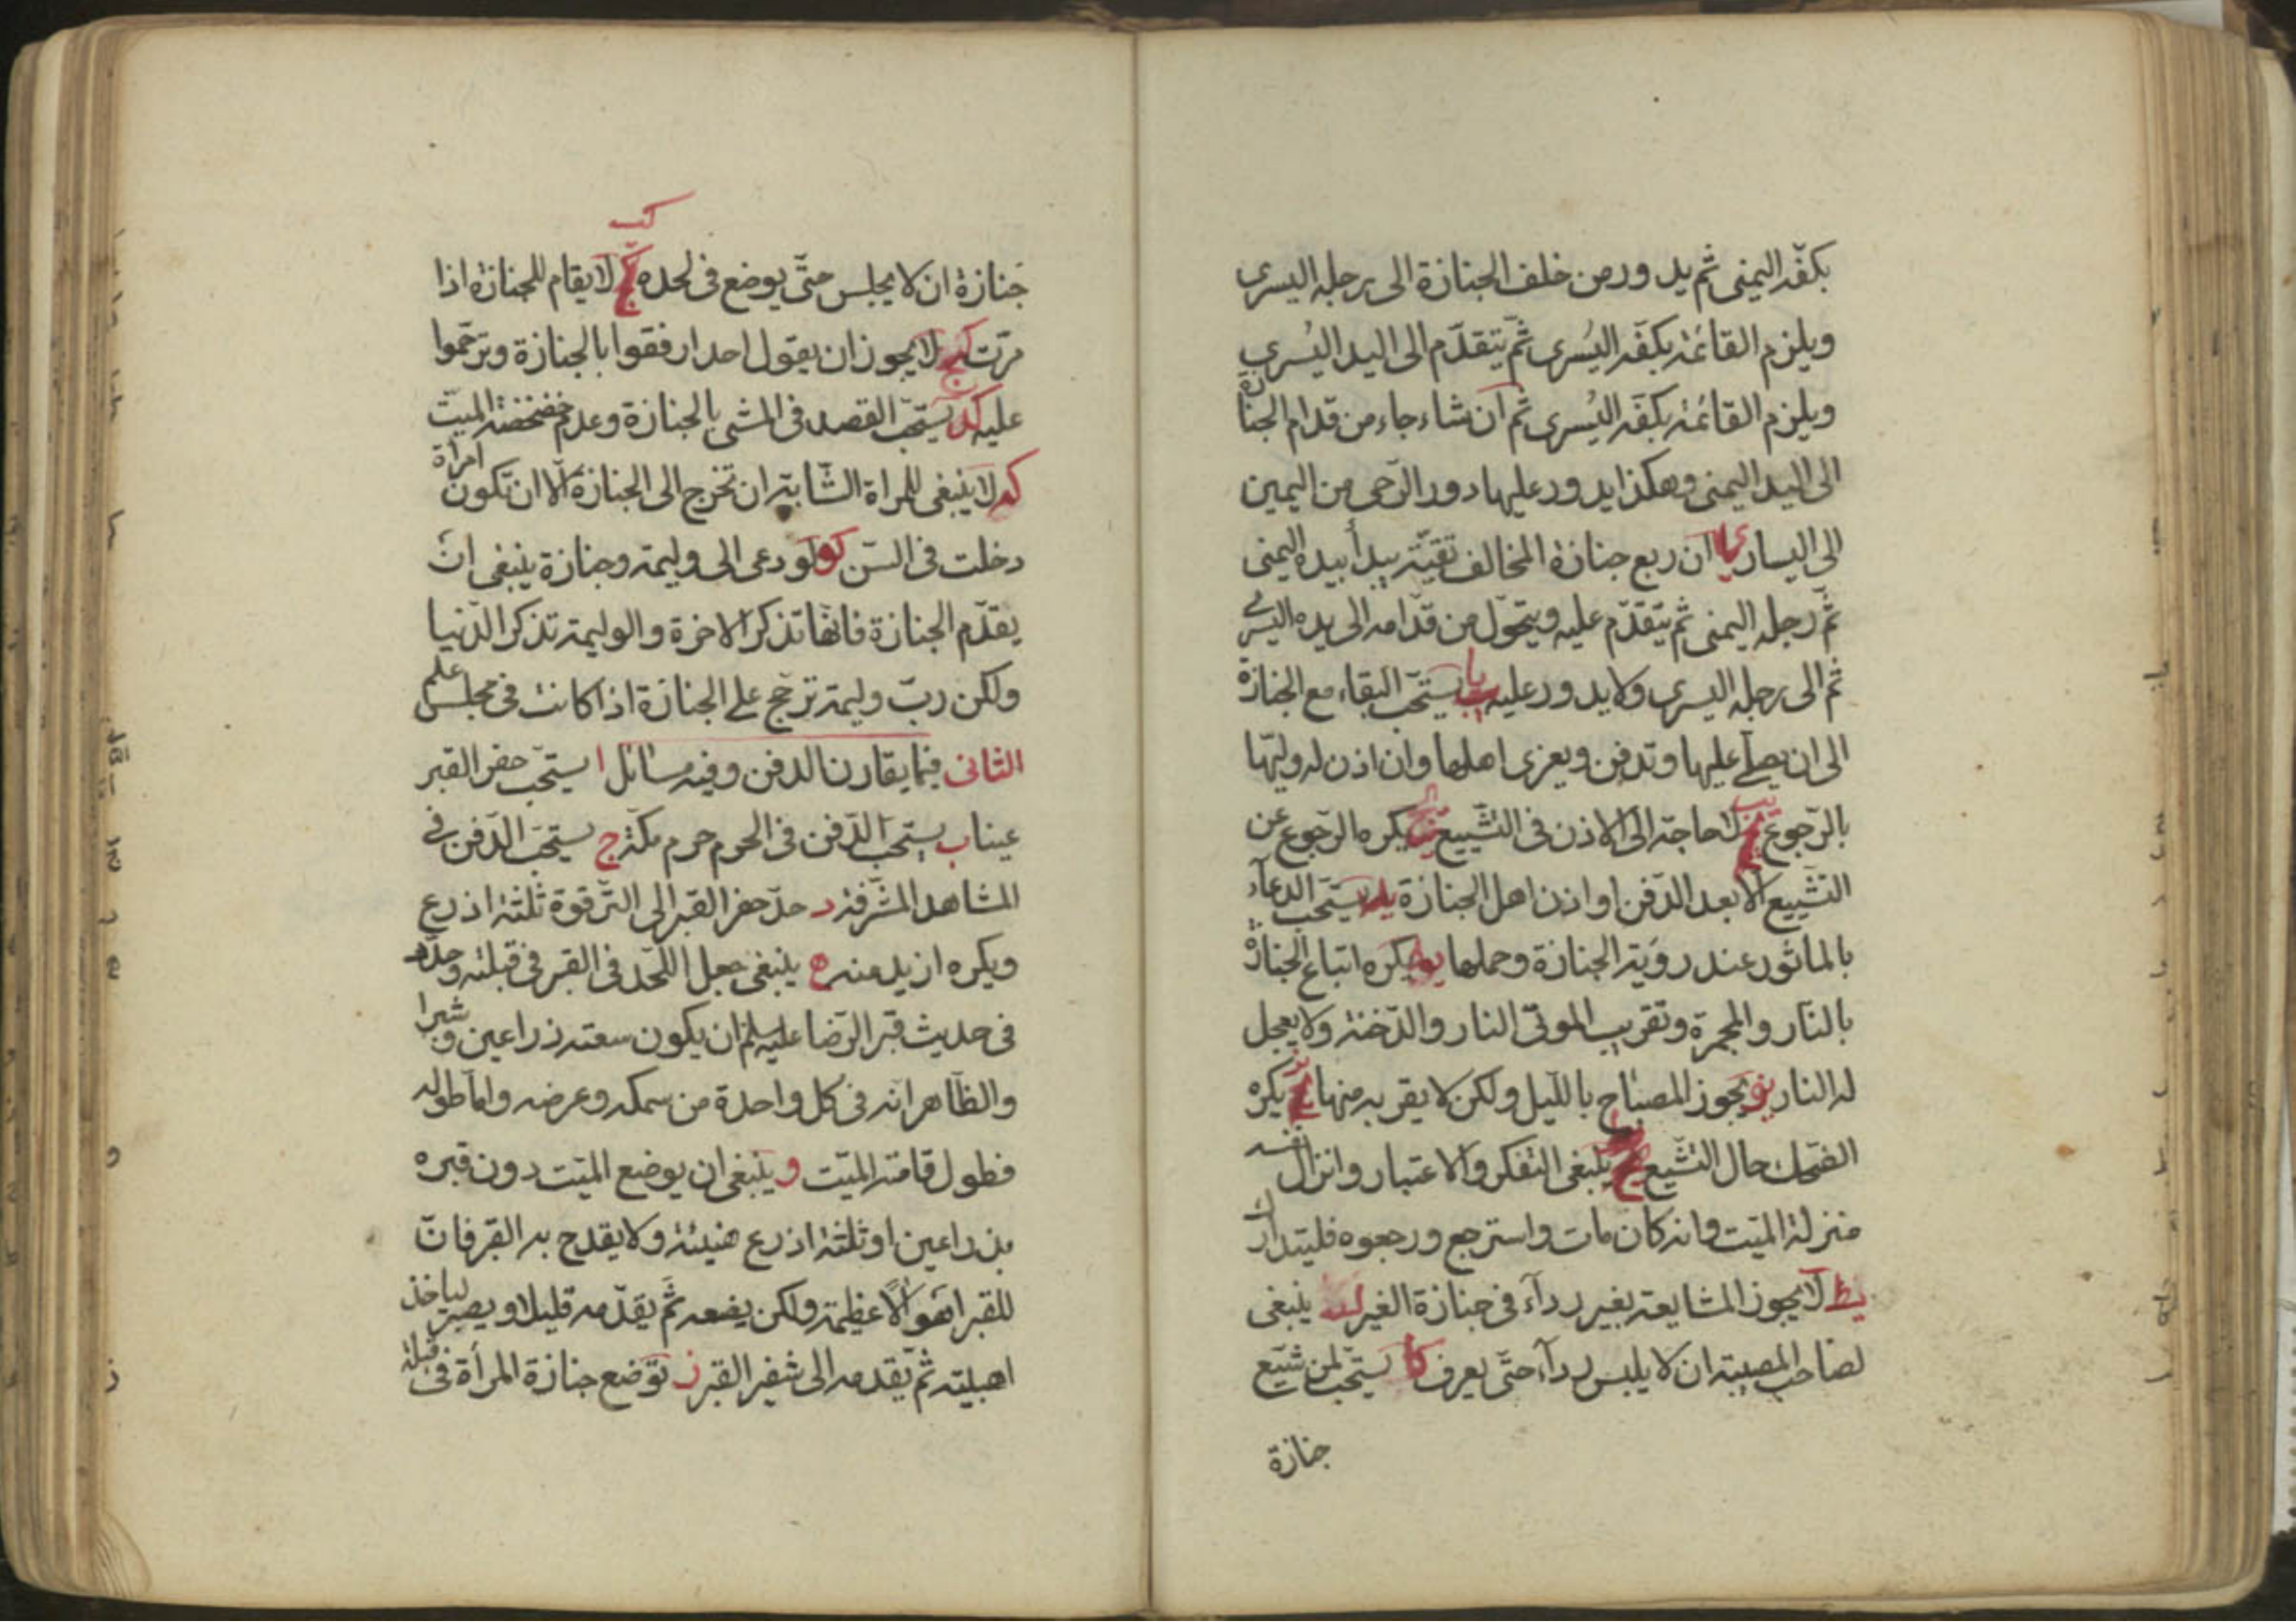 بكفّه اليمنى ثم يدور من خلف الجنازة الى رجله اليسرى
ويلزم القائمة بكفّه اليُسرى ثمّ يتقدّم الى اليد اليُسرى
ويلزم القائمة بكفّه اليُسرى ثم ان شاء جاء من قدام الجنازة
الى اليد اليمنى وهكذا يدور عليها دور الرّحى من اليمين
الى اليسار يا ان ربع جنازة المخالف تقيّة يبدأ بيده اليمنى
ثمّ رجله اليمنى ثم يتقدّم عليه ويتحوّل من قدّامه الى يده اليسرى
ثم الى رجله اليسرى ولا يدور عليه يستحّب البقاء مع الجنازة
الى ان يصلّى عليها وتدفن ويعزى اهلها وان اذن له وليّها
بالرّجوع لا حاجة الى الاذن فى التشّييع يكره الرّجوع عن
التشّييع الا بعد الدّفن او اذن اهل الجنازة يد يستحّب الدعاء
بالماثور عند رؤية الجنازة وحملها يه يكره اتباع الجنازة
بالنّار والمجمرة وتقريب الموتى النار والدّخنة ولا يعجل
له النار يو يجوز المصباح بالليل ولكن لا يقربه منها يكره
الضّحك حال التشّيع ينبغى التفكر والاعتبار وانزال نفسه
منزلة الميّت وانه كان مات واسترجع ورجعوه فليتدارك
يط لا يجوز المشايعة بغير رداء فى جنازة الغير ينبغى
لصاحب المصيبة ان لا يلبس رداء حتّى يعرف كا يستحّب لمن شيّع
جنازة
كب
جنازة ان لا يجلس حتّى يوضع فى لحده لا يقام للجنازة اذا
مرّت كج لا يجوز ان يقول احد ارفقوا بالجنازة وترحّموا
عليه كد يستحّب القصد فى المشى بالجنازة وعدم خضخضة الميّت
كه لا ينبغى للمراة الشّابة ان تخرج الى الجنازة الّا ان تكون امراة
دخلت فى السّن كو لو دعى الى وليمة وجنازة ينبغى ان
يقدّم الجنازة فانّها تذكر الاخرة والوليمة تذكر الدّنيا
ولكن ربّ وليمة ترجّح على الجنازة اذا كانت فى مجلس علم
الثانى فيما يقارن الدفن وفيه مسائل ا يستحّب حفر القبر
عينا ب يستحّب الدّفن فى الحرم حرم مكة ج يستحّب الدّفن فى
المشاهد المشرّفة د حدّ حفر القبر الى التّرقوة ثلثة اذرع
ويكره ازيد منه ه ينبغى جعل اللّحد فى القبر فى قبلته وحدّه
فى حديث قبر الرّضا عليه السلم ان يكون سعته ذراعين وشبرا
والظّاهر انّه فى كل واحدة من سمكه وعرضه وامّا طوله
فطول قامة الميّت و ينبغى ان يوضع الميّت دون قبره
بذراعين او ثلثة اذرع هنيئة ولا يقدح به القبر فانّ
للقبر اهوالًا عظيمة ولكن يضعه ثمّ يقدّمه قليلا ويصبر لياخذ
اهبيته ثمّ يقدمه الى شفير القبر ز توضع جنازة المرأة فى قبلة